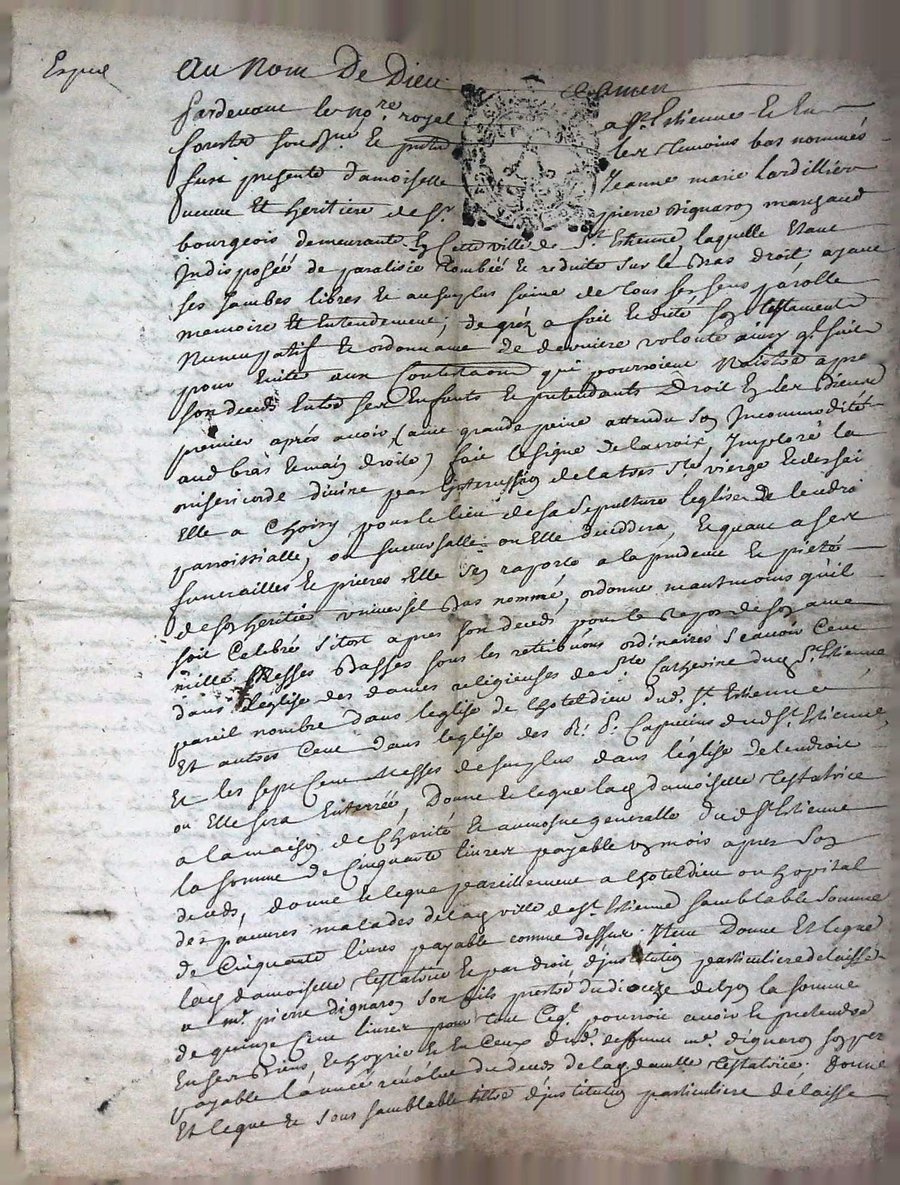 Expedié
Au Nom De Dieu Amen
Pardevant le no.re royal a St. Etiennes Et En
forestz soussigné Et presents les temoins bas nommés
fust presente damoiselle Jeanne marie Lardillier
veuve Et heritiere de Sr. pierre Dignaron marchand
bourgeois demeurante En cette ville de St. Etienne, laquelle Etant
Indisposéé de paralisie tombéé Et reduite sur le Bras droit, ayant
ses Jambes libres Et au surplus saine de tous ses sens, parolle
memoire Et Entendement, de gré a fait Et dicté son testament
Nuncupatif Et ordonnance de derniere volonté ainsi q.l suit
pour Eviter aux Contestaons qui pourroient Naistre apres
son deceds Entre ses Enfants Et pretendants Droit En ses Biens
premier aprés avoir (avec grande peine attendu son Incommodité
aud bras Et main droite) fait le signe de la croix, Imploré la
misericorde divine par l'intercession de la tres Ste vierge Et des sai
Elle a Choisy pour le lieu de sa Sepulture l'eglise de lendroi
parroissialle, ou sucursalle ou Elle decedera, Et quant a ses
funerailles Et prieres Elle s'en raporte a la prudence Et pieté
de son heritier universel bas nommé, ordonne neantmoins qu'il
soit Celebré sitost apres son deceds pour le Repos de son ame
mille Messes Basses sous les retributions ordinaires scavoir Cent
dans l'eglise des dames religieuses de Ste Catherine dud St. Etienne
pareil nombre dans l'eglise de l'hoteldieu dud. St. Etienne
Et autres Cent dans leglise des R. P. Capucins dud St. Etienne,
Et les sept Cent Messes de surplus dans l'église de lendroit
ou Elle sera Enterréé, Donne Et legue lad damoiselle testatrice
a la maison de Charité Et aumosne generalle dud St Etienne
la somme de Cinquante livres payable un mois apres son
deceds, donne Et legue pareillement a l'hoteldieu ou hopital
des pauvres malades de lad ville de St. Etienne semblable somme
de Cinquante livres payable comme dessus. Item Donne Et legue
lad damoiselle testatrice Et par droit d'institution particuliere delaisse
a mr. pierre Dignaron son fils prestre du dioceze de lyon la somme
de quinze Cent livres pour tout Ce q.l pourroit avoir Et pretendre
En ses Biens, Et hoyrie Et En Ceux dud. deffunt mr. dignaron son pere
payable l'année révolüe du deceds de lad damlle testatrice. Donne
Et legue Et sous semblable titre d'institution particuliere délaisse